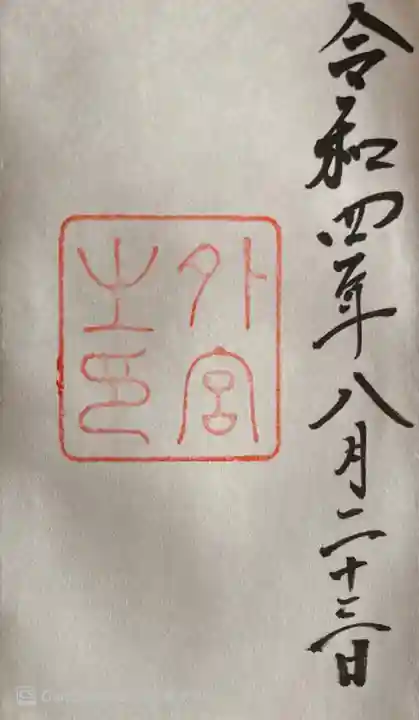 令和四年八月二十三日
外宮
之印
CS